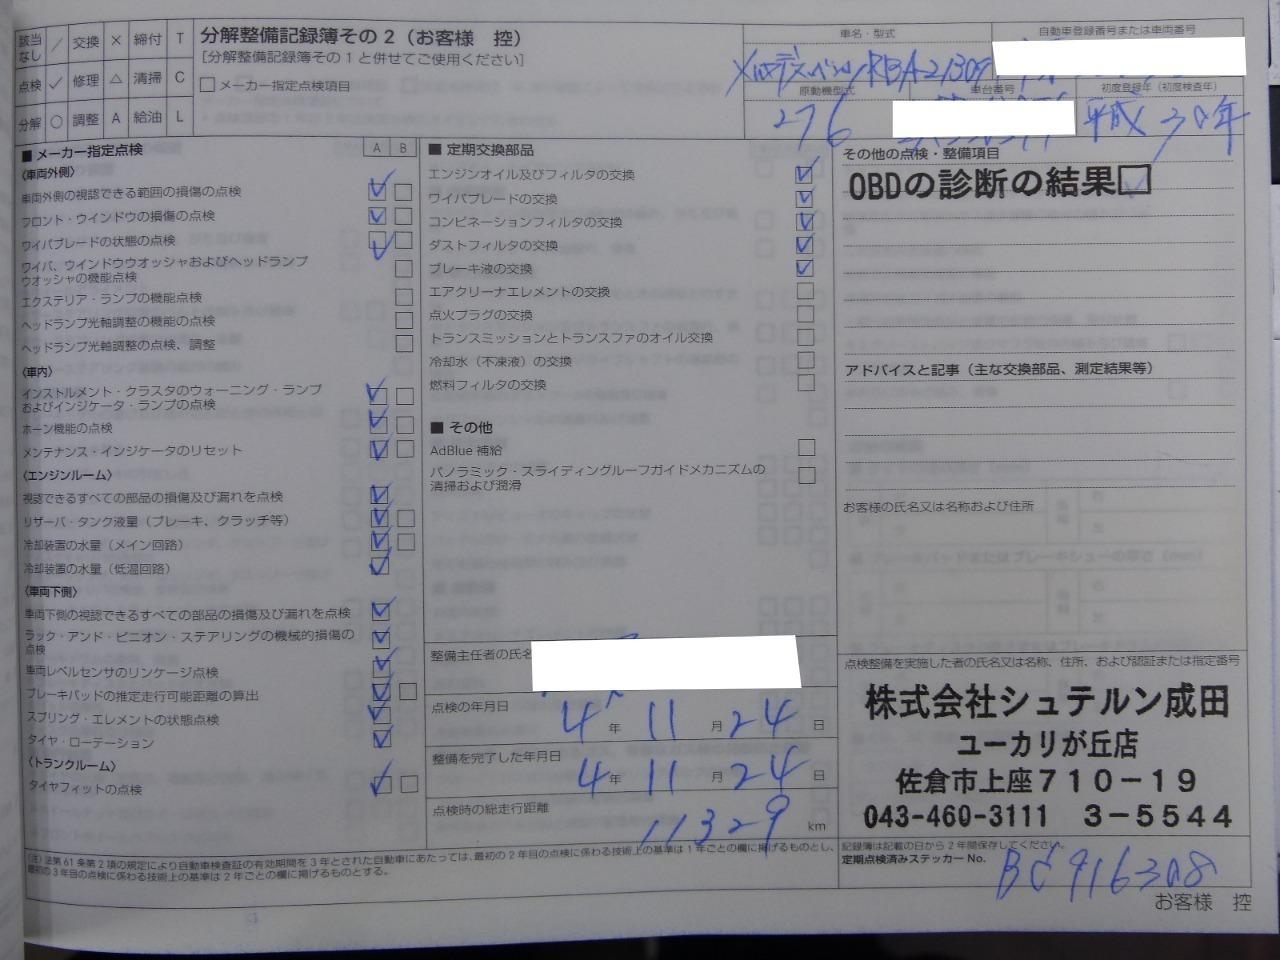 該当なし ／ 交換 × 締付 T
点検 ✓ 修理 △ 清掃 C
分解 ○ 調整 A 給油 L
分解整備記録簿その２（お客様　控）
［分解整備記録簿その１と併せてご使用ください］
□ メーカー指定点検項目
車名・型式
自動車登録番号または車両番号
原動機型式
276
車台番号
初度登録年（初度検査年）
平成30年
■ メーカー指定点検 A B
〈車両外側〉
車両外側の視認できる範囲の損傷の点検
フロント・ウインドウの損傷の点検
ワイパブレードの状態の点検
ワイパ、ウインドウウオッシャおよびヘッドランプ
ウオッシャの機能点検
エクステリア・ランプの機能点検
ヘッドランプ光軸調整の機能の点検
ヘッドランプ光軸調整の点検、調整
〈車内〉
インストルメント・クラスタのウォーニング・ランプ
およびインジケータ・ランプの点検
ホーン機能の点検
メンテナンス・インジケータのリセット
〈エンジンルーム〉
視認できるすべての部品の損傷及び漏れを点検
リザーバ・タンク液量（ブレーキ、クラッチ等）
冷却装置の水量（メイン回路）
冷却装置の水量（低温回路）
〈車両下側〉
車両下側の視認できるすべての部品の損傷及び漏れを点検
ラック・アンド・ピニオン・ステアリングの機械的損傷の
点検
車両レベルセンサのリンケージ点検
ブレーキパッドの推定走行可能距離の算出
スプリング・エレメントの状態点検
タイヤ・ローテーション
〈トランクルーム〉
タイヤフィットの点検
■ 定期交換部品
エンジンオイル及びフィルタの交換
ワイパブレードの交換
コンビネーションフィルタの交換
ダストフィルタの交換
ブレーキ液の交換
エアクリーナエレメントの交換
点火プラグの交換
トランスミッションとトランスファのオイル交換
冷却水（不凍液）の交換
燃料フィルタの交換
■ その他
AdBlue 補給
パノラミック・スライディングルーフガイドメカニズムの
清掃および潤滑
整備主任者の氏名
点検の年月日
4 年 11 月 24 日
整備を完了した年月日
4 年 11 月 24 日
点検時の総走行距離
11329 km
その他の点検・整備項目
OBDの診断の結果□
アドバイスと記事（主な交換部品、測定結果等）
お客様の氏名又は名称および住所
点検整備を実施した者の氏名又は名称、住所、および認証または指定番号
株式会社シュテルン成田
ユーカリが丘店
佐倉市上座７１０－１９
043-460-3111　３－５５４４
（注）法第61条第２項の規定により自動車検査証の有効期間を３年とされた自動車にあたっては、最初の２年目の点検に係わる技術上の基準は１年ごとの欄に掲げるものとし、
最初の３年目の点検に係わる技術上の基準は２年ごとの欄に掲げるものとする。
記録簿は記載の日から２年間保存してください。
定期点検済みステッカー No.
BC916308
お客様　控